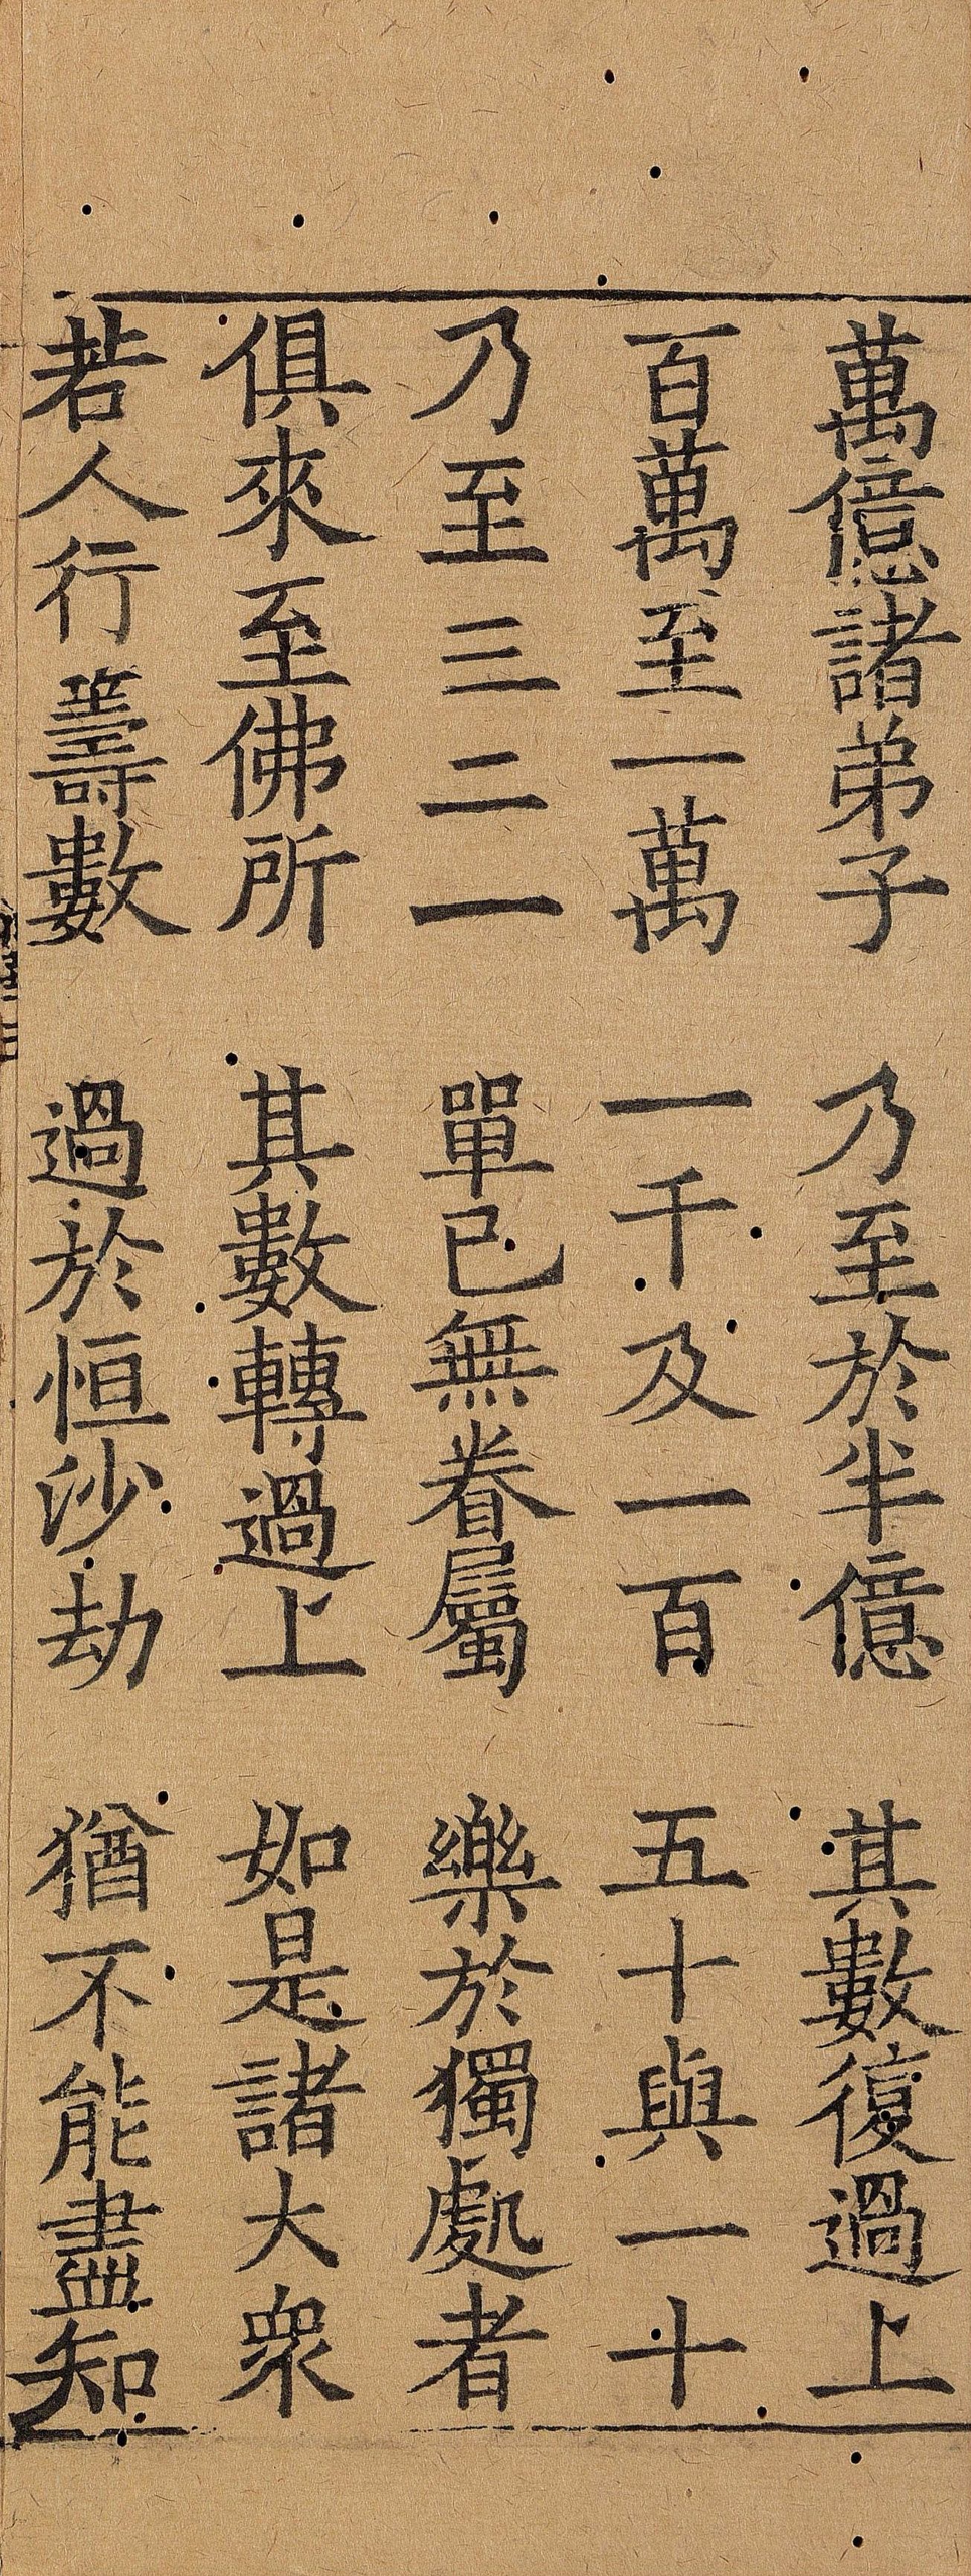 萬億諸弟子　乃至於半億　其數復過上
百萬至一萬　一千及一百　五十與一十
乃至三二一　單己無眷屬　樂於獨處者
俱來至佛所　其數轉過上　如是諸大眾
若人行籌數　過於恒沙劫　猶不能盡知